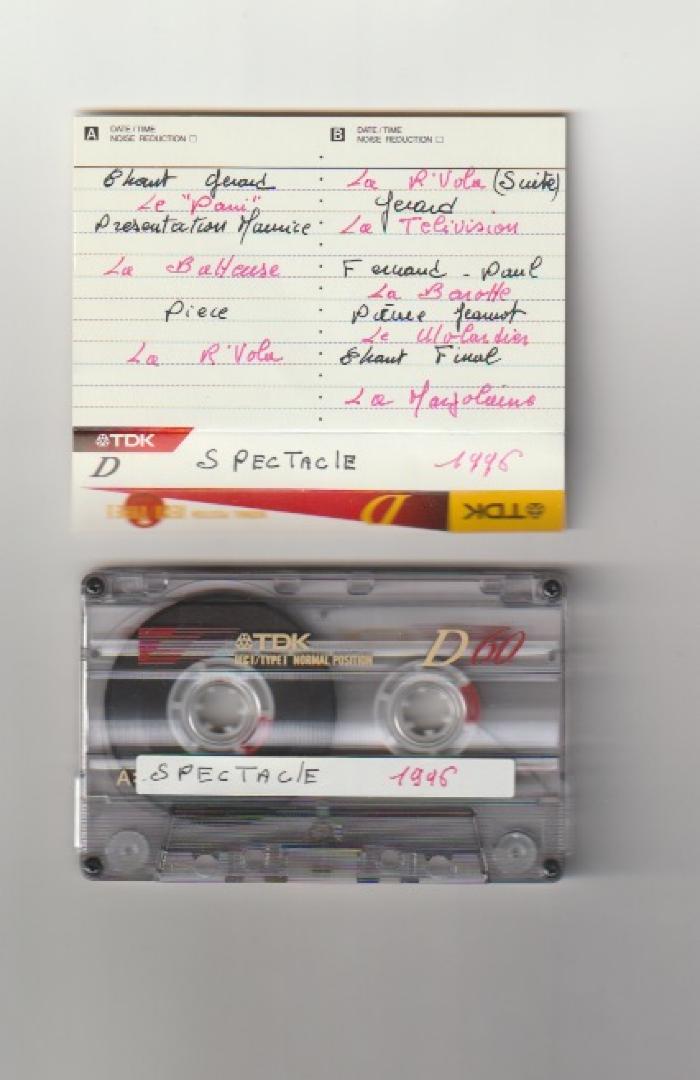 A DATE/TIME
NOISE REDUCTION
B DATE/TIME
NOISE REDUCTION
Chant Gerard
Le "Pani"
Presentation Maurice
La Batteuse
Piece
La R'Vola
La R'Vola (Suite)
Gerard
La Télévision
Fernand - Paul
La Barotte
Pierre Jeannot
Le
Chant Final
La Marjolaine
TDK
D SPECTAClE 1996
D TDK
TDK D60
IECI/TYPEI NORMAL POSITION
A SPECTAClE 1996